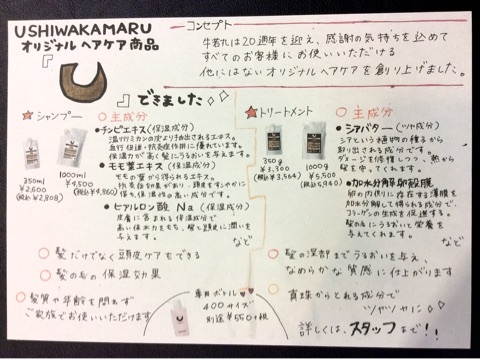 USHIWAKAMARU
オリジナル ヘアケア商品
『U』できました◇◇
コンセプト
牛若丸は20週年を迎え、感謝の気持ちを込めて
すべてのお客様にお使いいただける
他にはないオリジナルヘアケアを創り上げました。
シャンプー
350ml
¥2,600
(税込¥2,808)
1000ml
¥9,500
○主成分
・チンピエキス(保湿成分)
温州ミカンの皮より抽出されるエキス。
血行促進・抗炎症作用に優れています。
保湿力が高く髪にうるおいを与えます。
・モモ葉エキス(保湿成分)
モモの葉から得られるエキス。
保ち保護作用の高い成分です。
・ヒアルロン酸 Na (保湿成分)
皮膚に含まれる保湿成分で
高い保水力をもち、髪と頭皮に潤いを
与えます。
など
○髪だけでなく頭皮ケアもできる
○髪の毛の保湿効果
○髪質や年齢を問わず
ご家族でお使いいただけます
トリートメント
350g
¥3,300
(税込¥3,564)
1000g
¥5,500
(税込5,940)
○主成分
・シアバター(ツヤ成分)
シアという植物の種子から
取り出される成分です。
ダメージを修復しつつ、熱から
髪を守ってくれます。
・加水分解卵殻膜
卵の内側に存在する薄膜を
加水分解して得られる成分で、
コラーゲンの生成を促進する。
髪の毛にうるおいと栄養を
与えてくれます。
など
○髪の深部までうるおいを与え、
なめらかな質感に仕上がります
○真珠からとれる成分で
ツヤツヤに◇◇
専用ボトル♥♥
400サイズ
別途¥550+税
詳しくは、スタッフまで!!